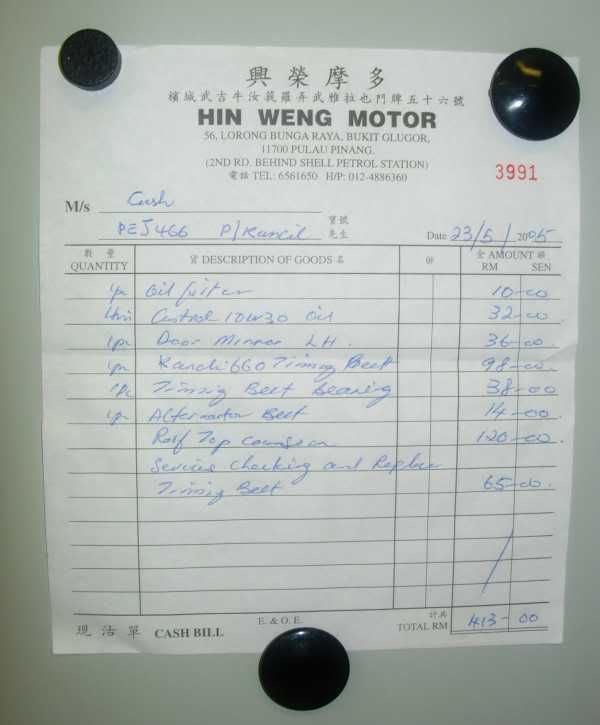 興榮摩多
檳城武吉牛汝莪羅弄武雅拉也門牌五十六號
HIN WENG MOTOR
56, LORONG BUNGA RAYA, BUKIT GLUGOR,
11700 PULAU PINANG.
(2ND RD. BEHIND SHELL PETROL STATION)
電話 TEL: 6561650 H/P: 012-4886360
3991
M/s Cash
寶號
PEJ466 P/Kancil 先生 Date 23/5/2005
數量 QUANTITY 貨 DESCRIPTION OF GOODS 名 @ 金 AMOUNT 銀 RM SEN
1pc Oil Filter 10-00
Castrol 10W30 Oil 32-00
1pc Door Mirror LH. 36-00
1pc Kancil 660 Timing Belt 98-00
1pc Timing Belt Bearing 38-00
1pc Alternator Belt 14-00
Top 120-00.
Services Checking and Replace
Timing Belt 65-00.
現沽單 CASH BILL E. & O. E. 計共 TOTAL RM 413-00